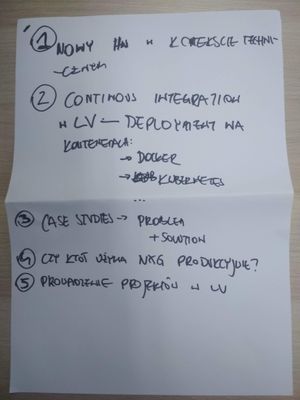 ① NOWY HW W KONTEKŚCIE TECHNI-
-CZNYM
② CONTINOUS INTEGRATION
W LV ← DEPLOYMENT NA
KONTENERACH:
→ DOCKER
→ KUBERNETES
...
③ CASE STUDIES → PROBLEM
+ SOLUTION
④ CZY KTOŚ UŻYWA NXG PRODUKCYJNIE?
⑤ PROWADZENIE PROJEKTÓW W LV